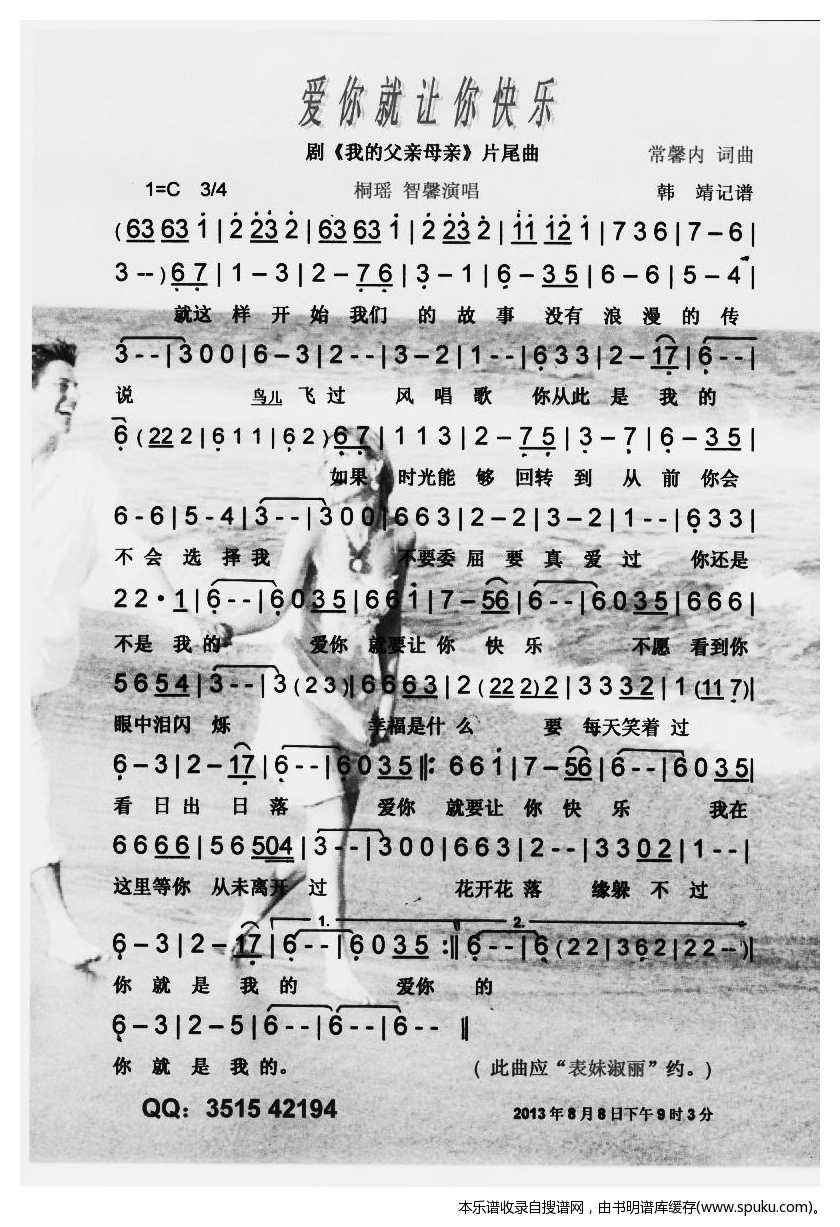 爱你就让你快乐
剧《我的父亲母亲》片尾曲
常馨内 词曲
1=C 3/4 桐瑶 智馨演唱 韩 靖记谱
(63 63 1|2 23 2|63 63 1|2 23 2|11 12 1|7 3 6|7 – 6|
3 --)6 7|1 – 3|2 – 7 6|3 – 1|6 – 3 5|5 – 4|
就这 样 开 始 我们 的 故 事 没有 浪 漫 的 传
3 - -|3 0 0|6 – 3|2 - -|3 – 2|1 - -|6 3 3|2 – 17|6 - -|
说 鸟儿 飞 过 风 唱 歌 你从此 是 我 的
6 (22 2|6 1 1|6 2)6 7|1 1 3|2 – 7 5|3 – 7|6 – 3 5|
如果 时光能 够 回转 到 从 前 你会
6 - 6|5 - 4|3 - -|3 0 0|6 6 3|2 – 2|3 – 2|1 - -|6 3 3|
不 会 选 择 我 不要委 屈 要 真 爱 过 你还是
2 2 · 1|6 - -|6 0 3 5|6 6 1|7 – 56|6 - -|6 0 3 5|6 6 6|
不是 我 的 爱你 就要让 你 快 乐 不愿 看到你
5 6 5 4|3 - -|3 (2 3)|6 6 6 3|2 (22 2)2|3 3 3 2|1 (11 7)|
眼中泪闪 烁 幸福是什 么 要 每天笑着 过
6 – 3|2 – 17|6 - -|6 0 3 5‖: 6 6 1|7 – 56|6 - -|6 0 3 5|
看 日 出 日 落 爱你 就要让 你 快 乐 我在
6 6 6 6|5 6 504|3 - -|3 0 0|6 6 3|2 - -|3 3 0 2|1 - -|
这里等你 从未离开 过 花开花 落 缘躲 不 过
1. 2.
6 – 3|2 – 17|6 - -|6 0 3 5 :‖6 - -|6 (2 2|3 6 2|2 2 --)|
你 就 是 我 的 爱你 的
6 – 3|2 – 5|6 - -|6 - -|6 - - ‖
你 就 是 我 的。 ( 此曲应“表妹淑丽”约。)
QQ：3515 42194 2013年8月8日下午9时3分
本乐谱收录自搜谱网，由书明谱库缓存(www.spuku.com)。